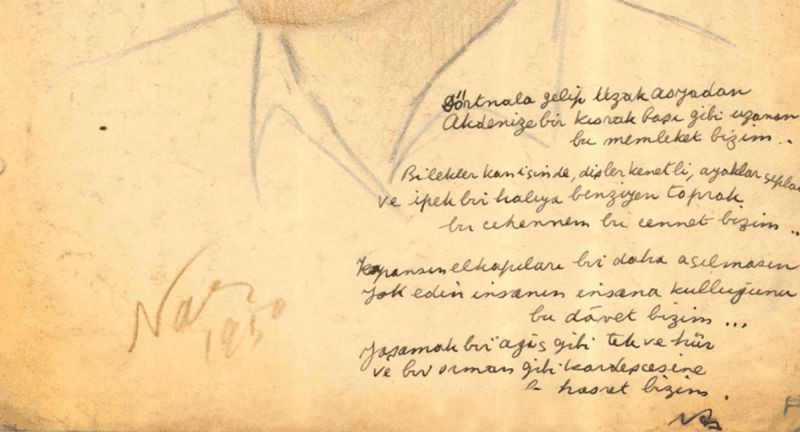 Dörtnala gelip Uzak asyadan
Akdenize bir kısrak başı gibi uzanan
bu memleket bizim..
Bilekler kan içinde, dişler kenetli, ayaklar çıplak
ve ipek bir halıya benziyen toprak
bu cehennem bu cennet bizim..
Kapansın el kapıları bir daha açılmasın
Yok edin insanın insana kulluğunu
bu dâvet bizim...
Yaşamak bir ağaç gibi tek ve hür
ve bir orman gibi kardeşcesine
bu hasret bizim.
1950